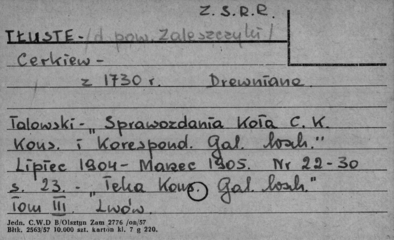 Z.S.R.R.
TŁUSTE - /d. pow. Zaleszczyki/
Cerkiew -
z 1730 r. Drewniana.
Tałowski - „Sprawozdania Koła C.K.
Kons. i Korespond. Gal. wsch."
Lipiec 1904 - Marzec 1905. Nr 22-30
s. 23. - „Teka Kons. Gal. wsch."
Tom III. Lwów.
Jedn. C.W.D B/Olsztyn Zam 2776 /na/57
Bltk. 2563/57 10.000 szt. karton kl. 7 g 220.